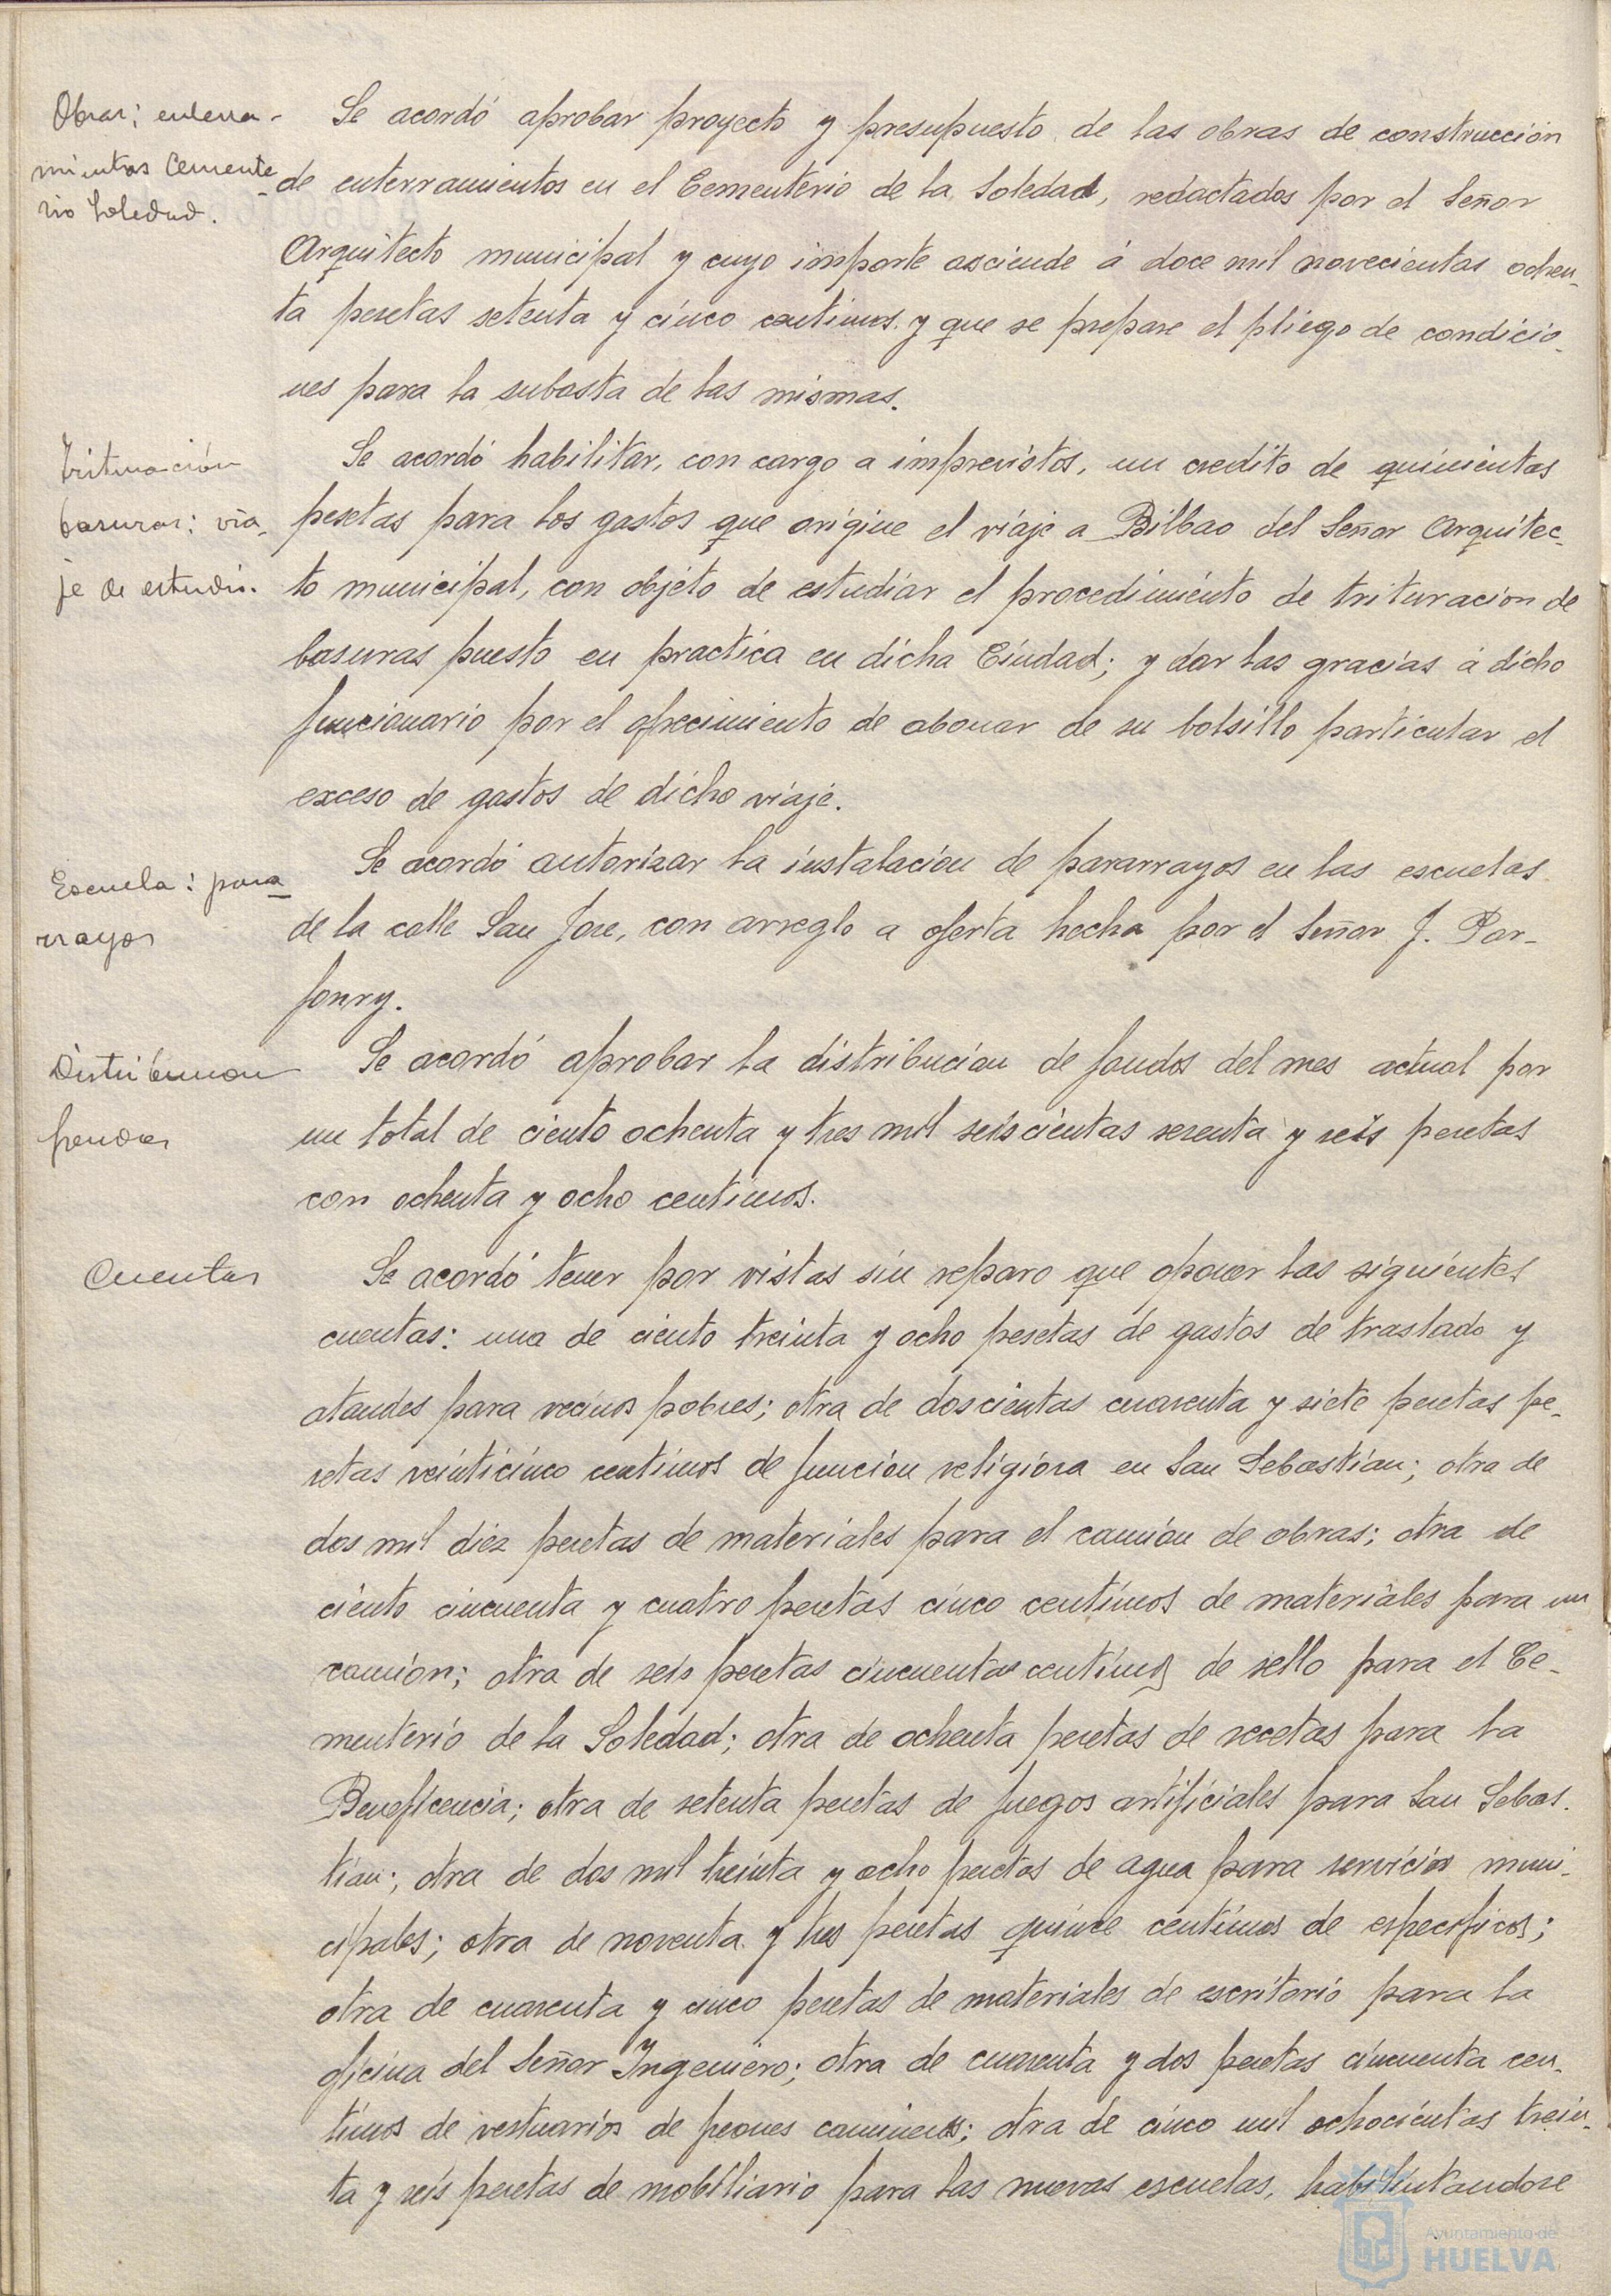 Obras; enterra-
mientos Cemente-
rio Soledad.
Se acordó aprobar proyecto y presupuesto de las obras de construcción
de enterramientos en el Cementerio de la Soledad, redactados por el Señor
Arquitecto municipal y cuyo importe asciende á doce mil novecientas ochen-
ta pesetas setenta y cinco centimos y que se prepare el pliego de condicio-
nes para la subasta de las mismas.
Trituración
basuras; via-
je de estudio.
Se acordó habilitar, con cargo a imprevistos, un credito de quinientas
pesetas para los gastos que origine el viaje a Bilbao del Señor Arquitec-
to municipal, con objeto de estudiar el procedimiento de trituracion de
basuras puesto en practica en dicha Ciudad; y dar las gracias á dicho
funcionario por el ofrecimiento de abonar de su bolsillo particular el
exceso de gastos de dicho viaje.
Escuela: para-
rrayos
Se acordó autorizar la instalación de pararrayos en las escuelas
de la calle San Jose, con arreglo a oferta hecha por el Señor J. Par-
fonry.
Distribucion
fondos
Se acordó aprobar la distribución de fondos del mes actual por
un total de ciento ochenta y tres mil seiscientas sesenta y seis pesetas
con ochenta y ocho centimos.
Cuentas
Se acordó tener por vistas sin reparo que oponer las siguientes
cuentas: una de ciento treinta y ocho pesetas de gastos de traslado y
ataudes para vecinos pobres; otra de doscientas cuarenta y siete pesetas pe-
setas veinticinco centimos de función religiosa en San Sebastian; otra de
dos mil diez pesetas de materiales para el camión de obras; otra de
ciento cincuenta y cuatro pesetas cinco centimos de materiales para un
camión; otra de seis pesetas cincuenta centimos de sello para el Ce-
menterio de la Soledad; otra de ochenta pesetas de recetas para la
Beneficencia; otra de setenta pesetas de fuegos artificiales para San Sebas-
tian; otra de dos mil treinta y ocho pesetas de agua para servicios muni-
cipales; otra de noventa y tres pesetas quince centimos de especificos;
otra de cuarenta y cinco pesetas de materiales de escritorio para la
oficina del Señor Ingeniero; otra de cuarenta y dos pesetas cincuenta cen-
timos de vestuarios de peones camineros; otra de cinco mil ochocientas trein-
ta y seis pesetas de mobiliario para las nuevas escuelas, habilintandose
Ayuntamiento de
HUELVA